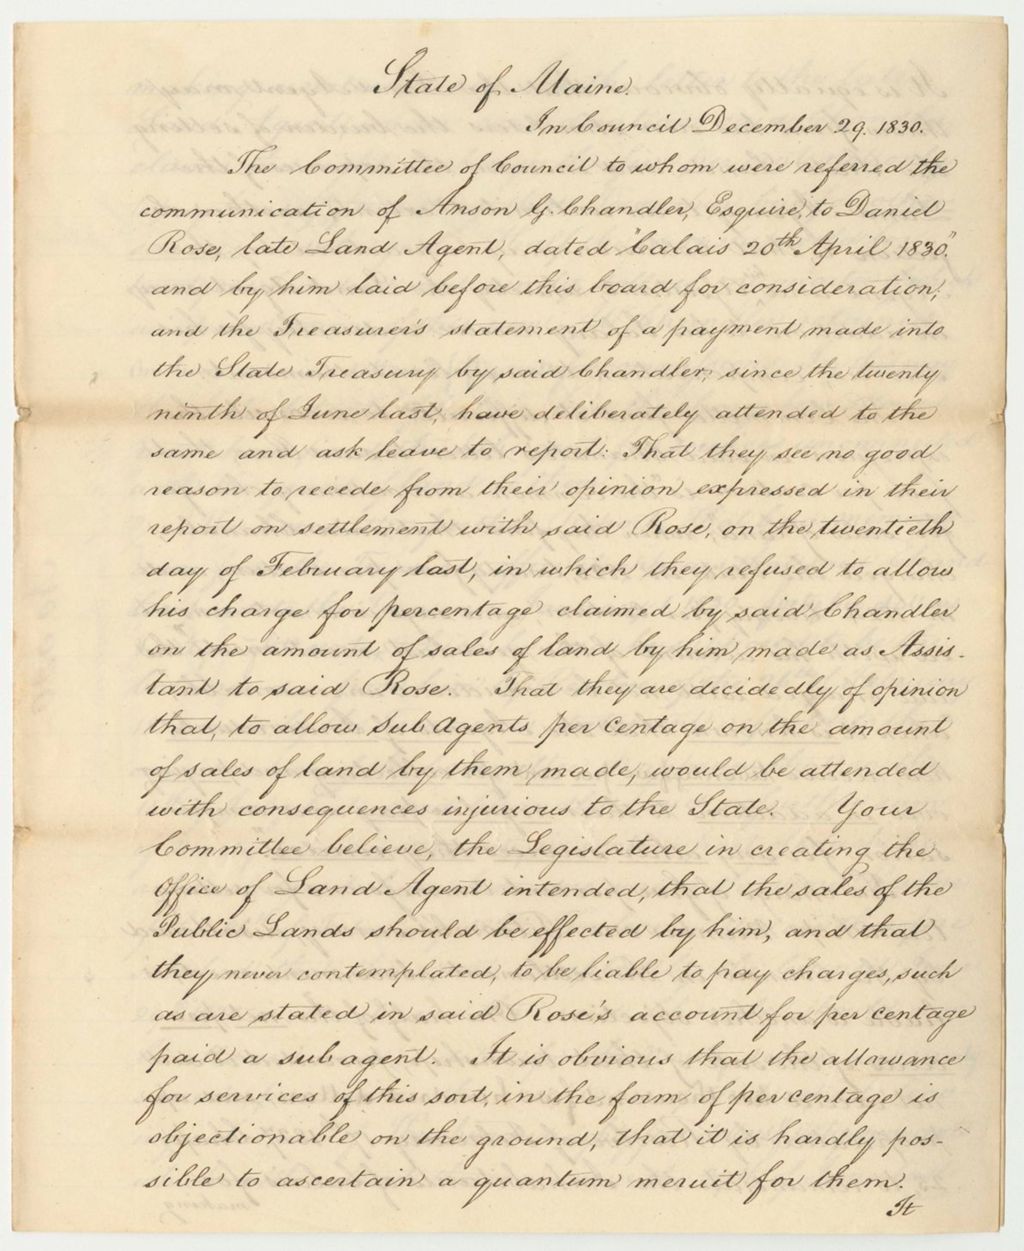 State of Maine.
In Council December 29. 1830.
The Committee of Council to whom were referred the
communication of Anson G. Chandler, Esquire, to Daniel
Rose, late Land Agent, dated "Calais 20th April 1830,"
and by him laid before this board for consideration,
and the Treasurer's statement of a payment made into
the State Treasury by said Chandler, since the twenty
ninth of June last, have deliberately attended to the
same and ask leave to report: That they see no good
reason to recede from their opinion expressed in their
report on settlement with said Rose, on the twentieth
day of February last, in which they refused to allow
his charge for percentage claimed by said Chandler
on the amount of sales of land by him made as Assis-
tant to said Rose. That they are decidedly of opinion
that, to allow Sub Agents per centage on the amount
of sales of land by them made, would be attended
with consequences injurious to the State. Your
Committee believe, the Legislature in creating the
Office of Land Agent intended, that the sales of the
Public Lands should be effected by him, and that
they never contemplated, to be liable to pay charges, such
as are stated in said Rose's account for per centage
paid a sub agent. It is obvious that the allowance
for services of this sort, in the form of per centage is
objectionable on the ground, that it is hardly pos-
sible to ascertain a quantum meruit for them.
It